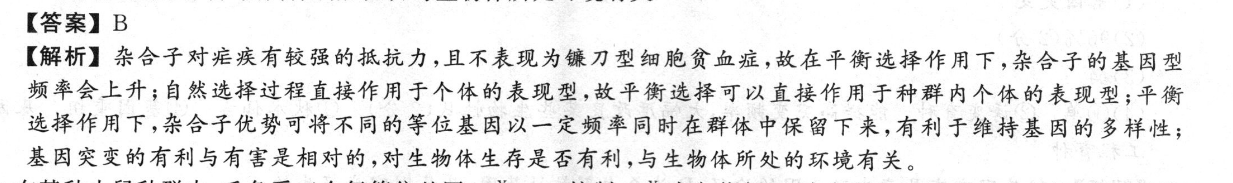 【答案】B
【解析】杂合子对疟疾有较强的抵抗力,且不表现为镰刀型细胞贫血症,故在平衡选择作用下,杂合子的基因型
频率会上升;自然选择过程直接作用于个体的表现型,故平衡选择可以直接作用于种群内个体的表现型;平衡
选择作用下,杂合子优势可将不同的等位基因以一定频率同时在群体中保留下来,有利于维持基因的多样性;
基因突变的有利与有害是相对的,对生物体生存是否有利,与生物体所处的环境有关。